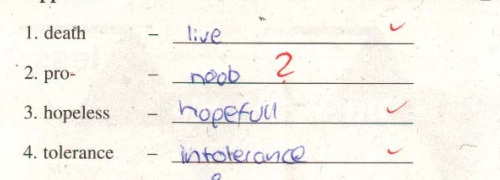 1. death – live
2. pro- – noob ?
3. hopeless – hopefull
4. tolerance – intolerance